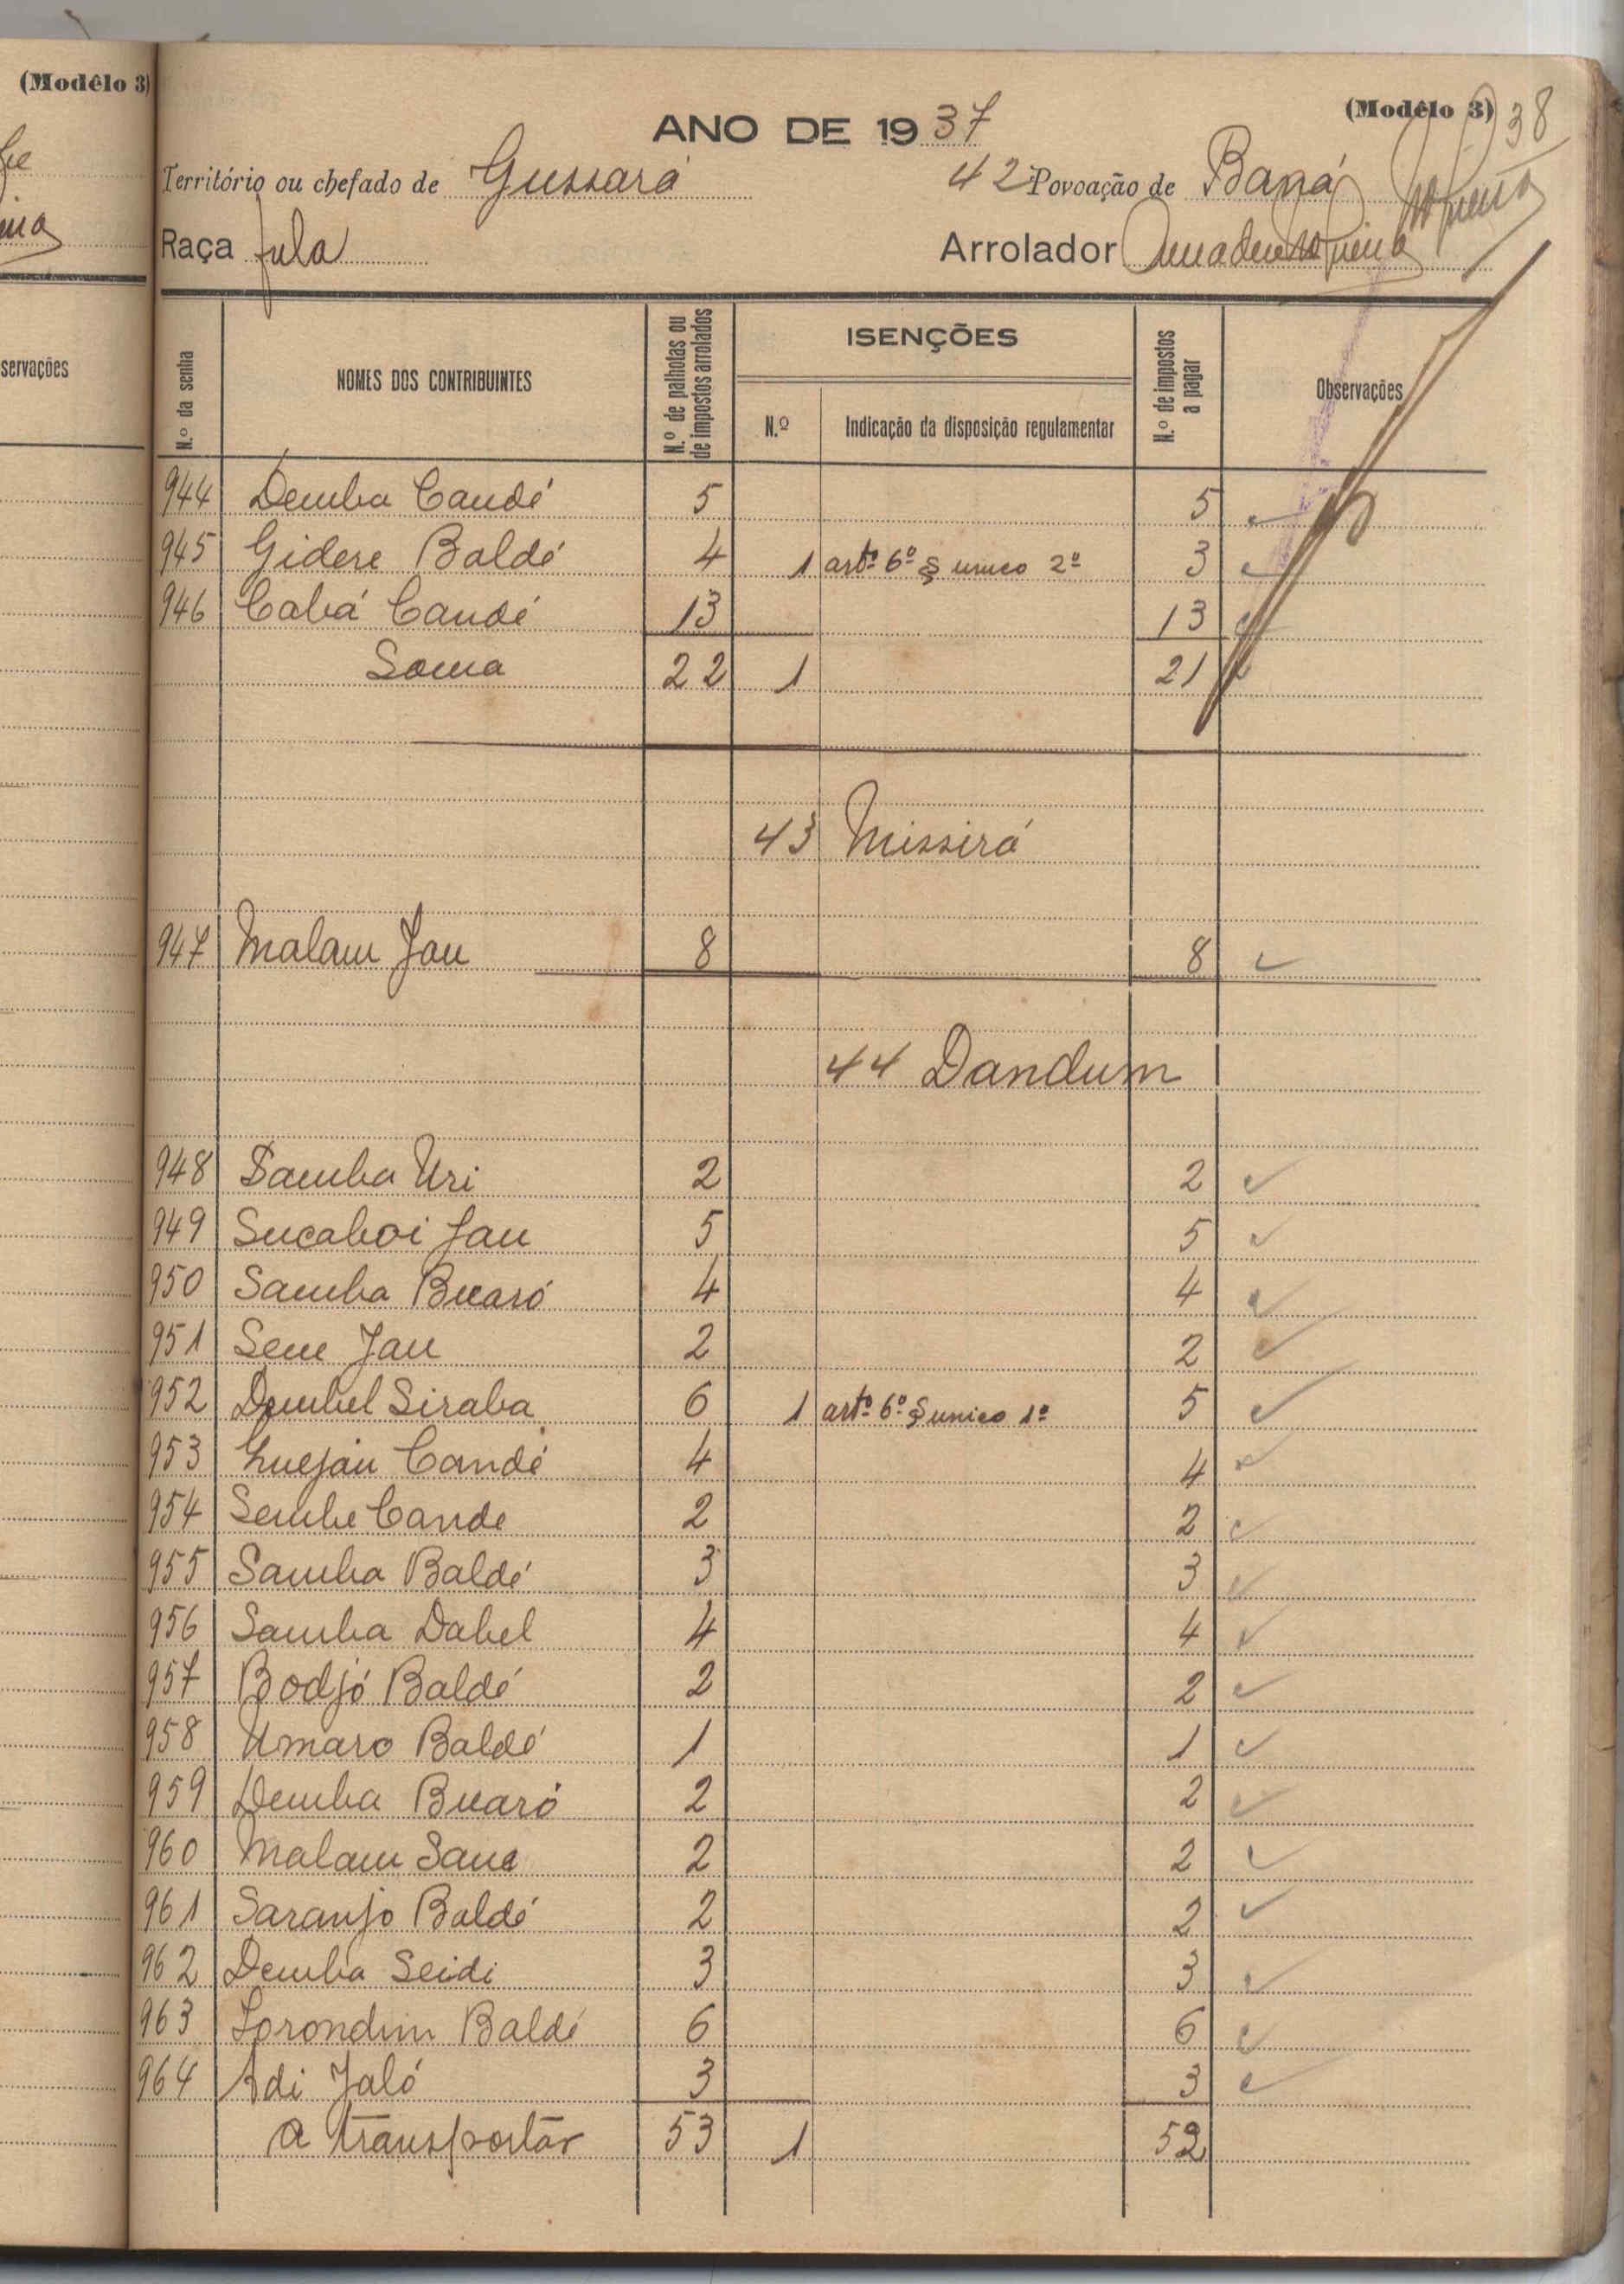 (Modêlo 3)
servações
(Modêlo 3)
38
ANO DE 1937
Território ou chefado de Gussará 42 Povoação de Baná
Raça fula Arrolador
N.º da senha NOMES DOS CONTRIBUINTES N.º de palhotas ou de impostos arrolados ISENÇÕES N.º Indicação da disposição regulamentar N.º de impostos a pagar Observações
944 Demba Candé 5 5
945 Gidere Baldé 4 1 artº 6º § unico 2º 3
946 Cabá Candé 13 13
Soma 22 1 21
43 Missirá
947 Malam Jau 8 8
44 Dandum
948 Samba Uri 2 2
949 Sucaboi Jau 5 5
950 Samba Buaró 4 4
951 Sene Jau 2 2
952 Dembel Siraba 6 1 artº 6º § unico 1º 5
953 Candé 4 4
954 Sembe Cande 2 2
955 Samba Baldé 3 3
956 Samba Dabel 4 4
957 Bodjó Baldé 2 2
958 Umaro Baldé 1 1
959 Demba Buaró 2 2
960 Malam Sane 2 2
961 Saranjo Baldé 2 2
962 Demba Seidi 3 3
963 Lorondim Baldé 6 6
964 Adi Jaló 3 3
A transportar 53 1 52